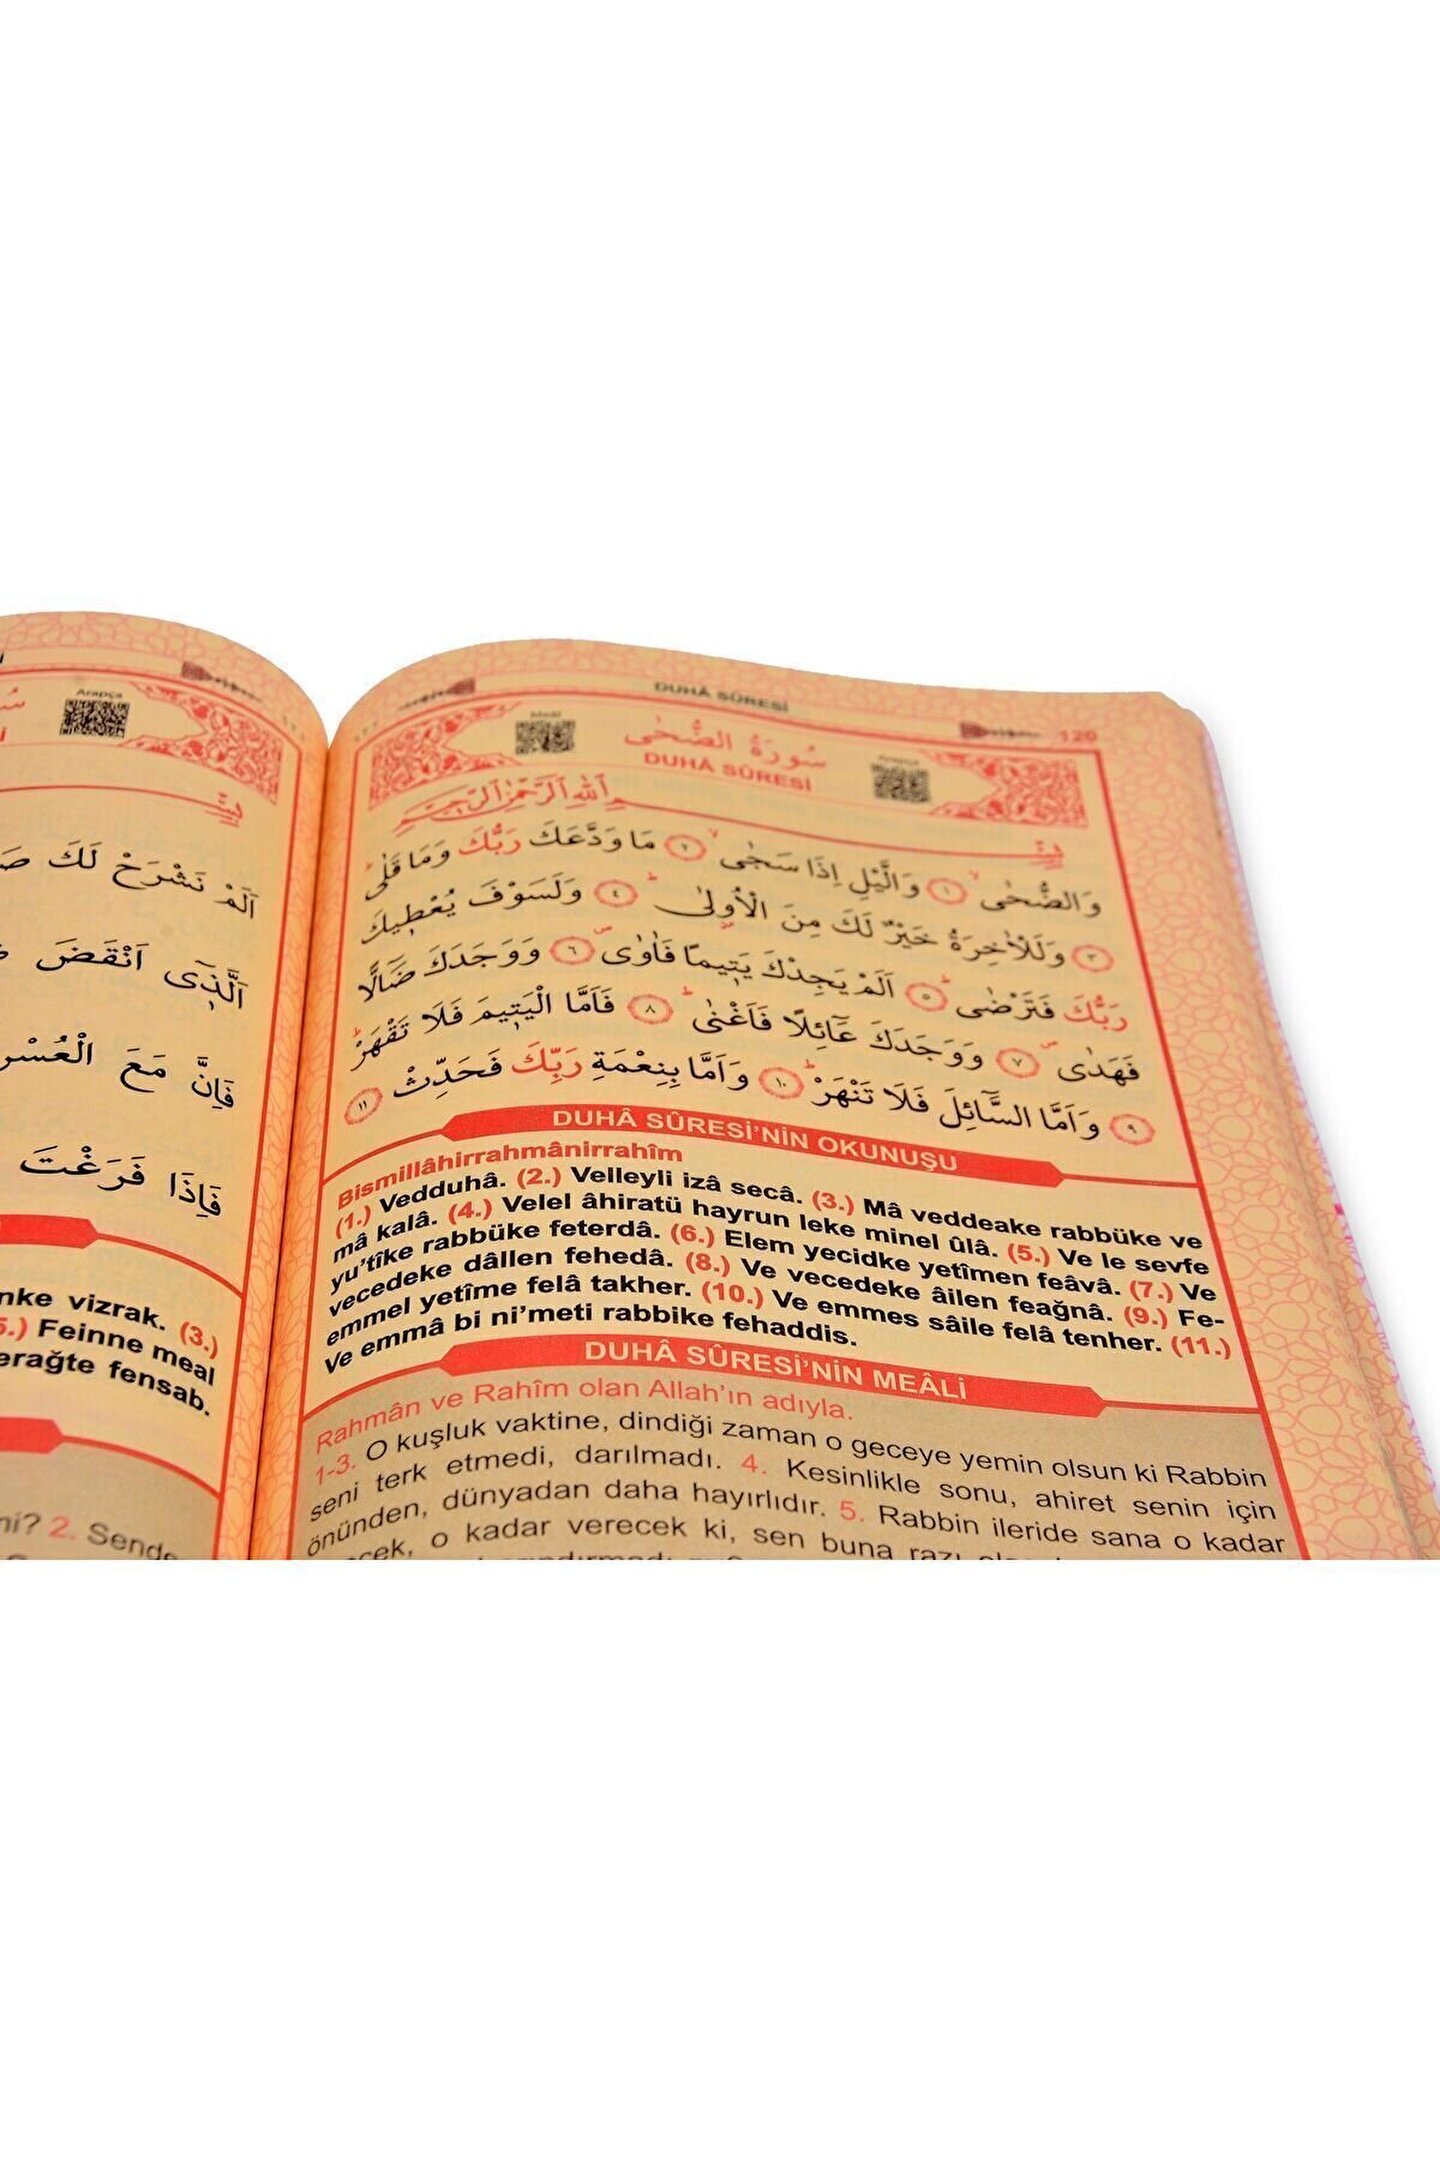 Arapça
اَلَمْ نَشْرَحْ لَكَ
اَلَّذٖٓى اَنْقَضَ
فَاِنَّ مَعَ الْعُسْرِ
فَاِذَا فَرَغْتَ
vizrak. (3.)
Feinne meal
fensab.
2. Sende
DUHÂ SÛRESİ
120
Meâl
سُورَةُ الضُّحٰى
Arapça
DUHÂ SÛRESİ
بِسْمِ اللّٰهِ الرَّحْمٰنِ الرَّحٖيمِ
وَالضُّحٰىۙ ﴿١﴾ وَالَّيْلِ اِذَا سَجٰىۙ ﴿٢﴾ مَا وَدَّعَكَ رَبُّكَ وَمَا قَلٰىؕ
﴿٣﴾ وَلَلْاٰخِرَةُ خَيْرٌ لَكَ مِنَ الْاُو۫لٰىؕ ﴿٤﴾ وَلَسَوْفَ يُعْطٖيكَ
رَبُّكَ فَتَرْضٰىؕ ﴿٥﴾ اَلَمْ يَجِدْكَ يَتٖيمًا فَاٰوٰىۖ ﴿٦﴾ وَوَجَدَكَ ضَٓالًّا
فَهَدٰىۖ ﴿٧﴾ وَوَجَدَكَ عَٓائِلًا فَاَغْنٰىؕ ﴿٨﴾ فَاَمَّا الْيَتٖيمَ فَلَا تَقْهَرْؕ
﴿٩﴾ وَاَمَّا السَّٓائِلَ فَلَا تَنْهَرْؕ ﴿١٠﴾ وَاَمَّا بِنِعْمَةِ رَبِّكَ فَحَدِّثْ ﴿١١﴾
DUHÂ SÛRESİ'NİN OKUNUŞU
Bismillâhirrahmânirrahîm
(1.) Vedduhâ. (2.) Velleyli izâ secâ. (3.) Mâ veddeake rabbüke ve
mâ kalâ. (4.) Velel âhiratü hayrun leke minel ûlâ. (5.) Ve le sevfe
yu'tîke rabbüke feterdâ. (6.) Elem yecidke yetîmen feâvâ. (7.) Ve
vecedeke dâllen fehedâ. (8.) Ve vecedeke âilen feağnâ. (9.) Fe-
emmel yetîme felâ takher. (10.) Ve emmes sâile felâ tenher. (11.)
Ve emmâ bi ni'meti rabbike fehaddis.
DUHÂ SÛRESİ'NİN MEÂLİ
Rahmân ve Rahîm olan Allah'ın adıyla.
1-3. O kuşluk vaktine, dindiği zaman o geceye yemin olsun ki Rabbin
seni terk etmedi, darılmadı. 4. Kesinlikle sonu, ahiret senin için
önünden, dünyadan daha hayırlıdır. 5. Rabbin ileride sana o kadar
o kadar verecek ki, sen buna razı